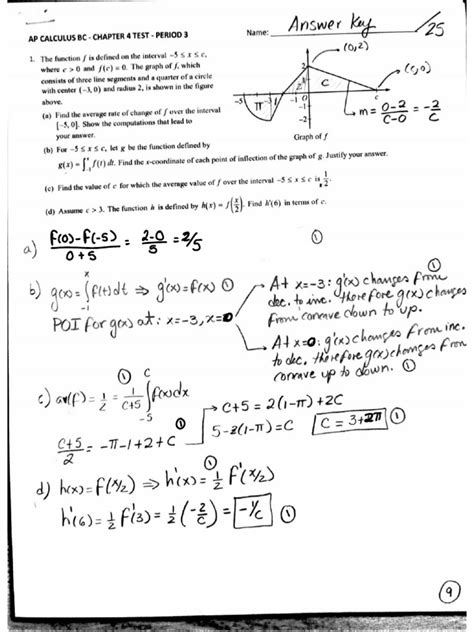 Answer Key
/25
AP CALCULUS BC - CHAPTER 4 TEST - PERIOD 3
Name:
(0,2)
1. The function f is defined on the interval −5 ≤ x ≤ c,
where c > 0 and f(c) = 0. The graph of f, which
consists of three line segments and a quarter of a circle
with center (−3, 0) and radius 2, is shown in the figure
above.
(c,0)
m = (0-2)/(c-0) = -2/c
Graph of f
(a) Find the average rate of change of f over the interval
[−5, 0]. Show the computations that lead to
your answer.
(b) For −5 ≤ x ≤ c, let g be the function defined by
g(x) = ∫_{-1}^{x} f(t) dt. Find the x-coordinate of each point of inflection of the graph of g. Justify your answer.
(c) Find the value of c for which the average value of f over the interval −5 ≤ x ≤ c is 1/2.
(d) Assume c > 3. The function h is defined by h(x) = f(x/2). Find h'(6) in terms of c.
a) (f(0)-f(-5))/(0+5) = (2-0)/5 = 2/5 ①
b) g(x) = ∫_{-1}^{x} f(t)dt ⇒ g'(x) = f(x) ①
POI for g(x) at: x=-3, x=0
At x=-3: g'(x) changes from
dec. to inc. therefore g(x) changes
from concave down to up.
At x=0: g'(x) changes from inc.
to dec. therefore g(x) changes from
concave up to down. ①
c) av(f) = 1/2 = 1/(c+5) ∫_{-5}^{c} f(x)dx ①
(c+5)/2 = -π-1+2+c ①
c+5 = 2(1-π)+2c
5-2(1-π) = c
c = 3+2π ①
d) h(x) = f(x/2) ⇒ h'(x) = 1/2 f'(x/2) ①
h'(6) = 1/2 f'(3) = 1/2 (-2/c) = -1/c ①
9